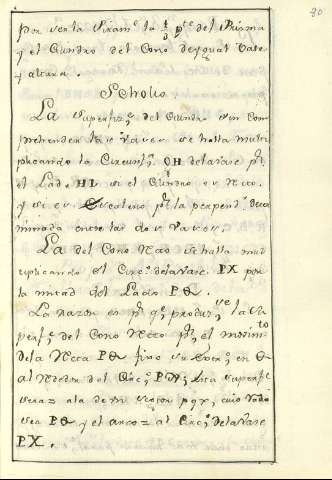 80
por ser la Piram.e la 1/3 p.te del Prisma
y el Cilindro del Cono de ygual Vase
y altura.
Scholio
La superfiz.e del Cilindro sin com
prehender las Vases se halla multi
plicando la Circunf.a OH de la vase p.r
el Lado HI si el Cilindro es Recto.
y si es Escaleno p.r la perpend.r deter
minada entre las dos Vases.
La del Cono Recto se halla mul
tiplicando el Circ.o de la Vase PX por
la mitad del Lado PQ.
La razon es p.r q.e produz.se la Su
perfi.e del Cono Recto p.r el movim.to
de la Recta PQ fixo su extr.o en Q
al Rededor del Circ.o
sea PQ y el arco = al Circ.o de la Vase
PX.